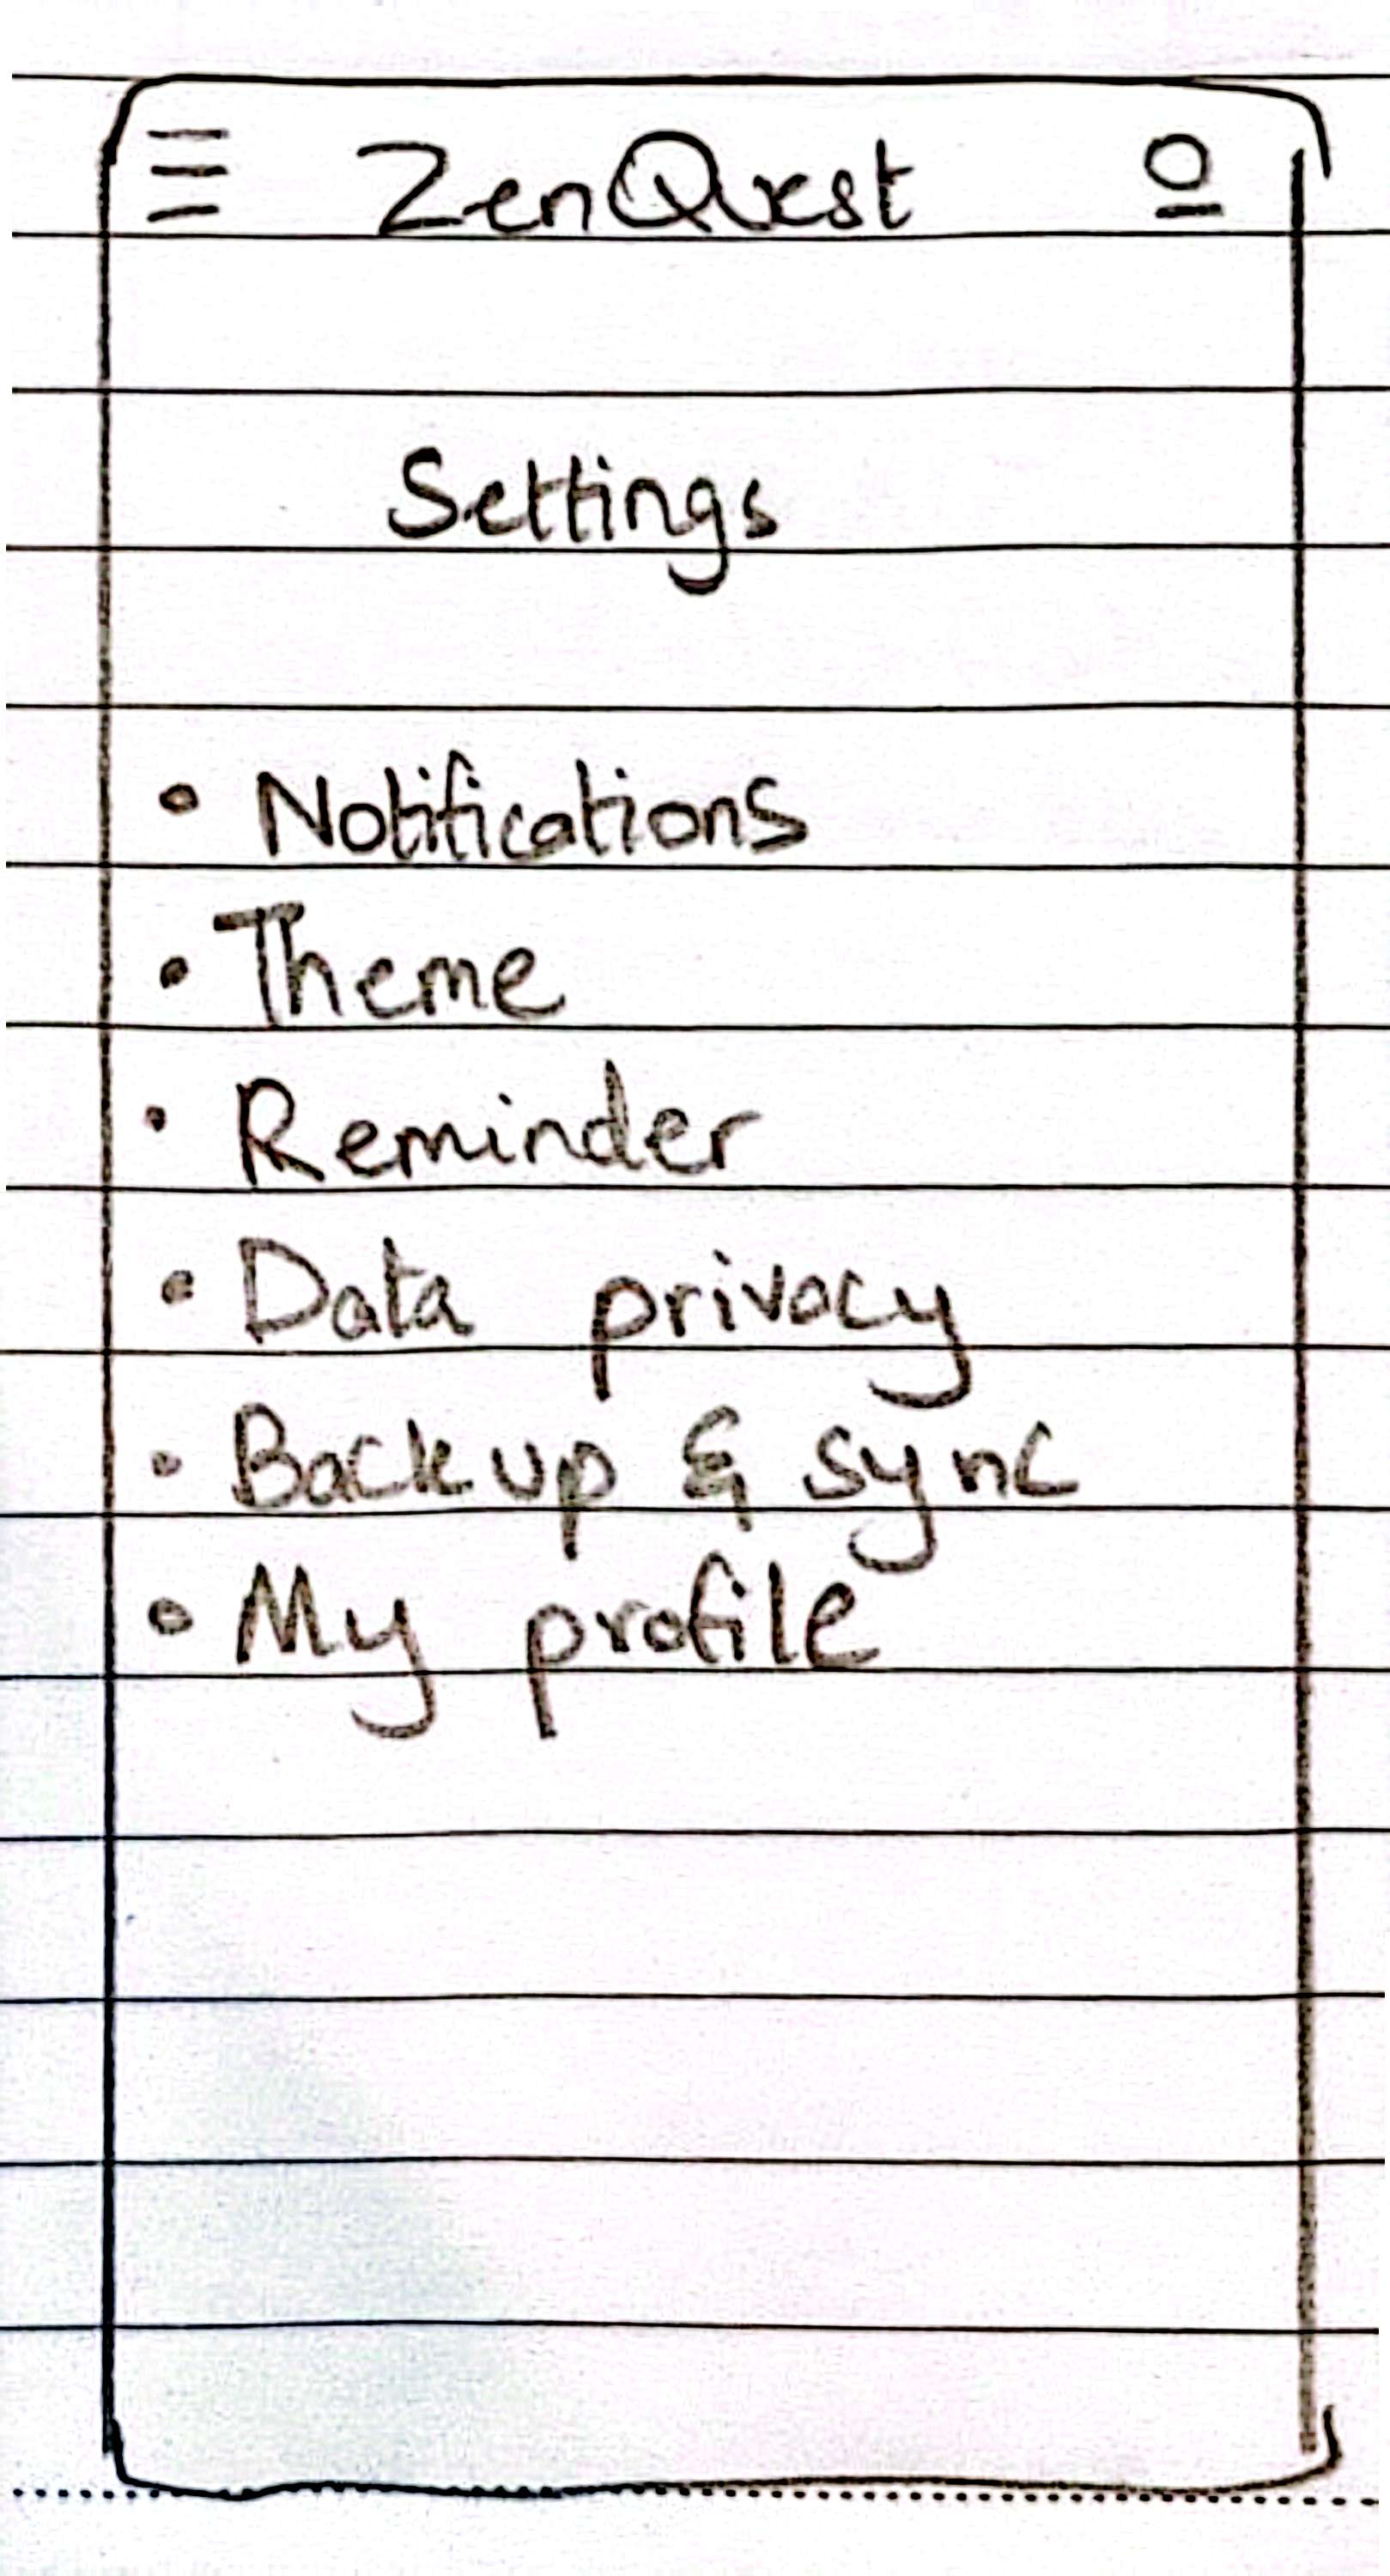 ZenQuest
Settings
• Notifications
• Theme
• Reminder
• Data privacy
• Backup & sync
• My profile